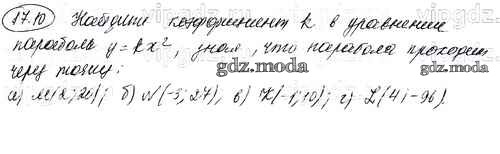 17.10 Найдите коэффициент k в уравнении
параболы y = kx², зная, что парабола проходит
через точку:
gdz.moda
gdz.moda
а) M(2; 20); б) N(-3; 27), в) K(-1; 10); г) L(4; -96).